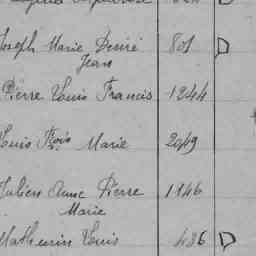 Joseph Marie Desiré 801 D
Jean
Pierre Louis Francis 1244
Louis Marie 2049
Julien Anne Pierre 1846
Marie
Mathurin Louis 436 D